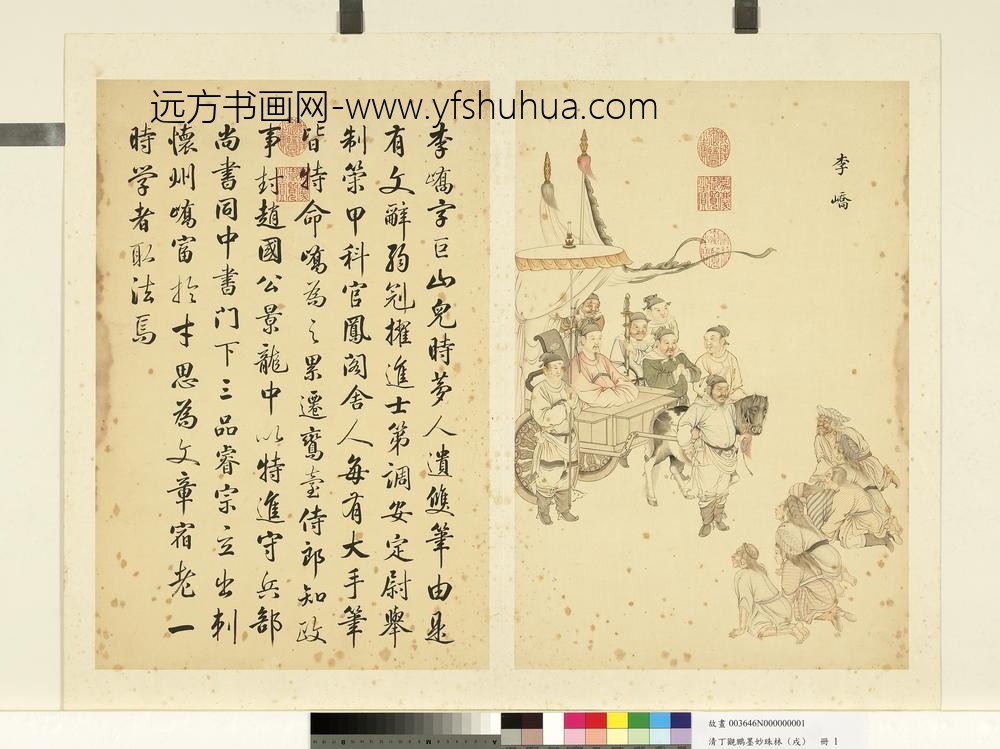 远方书画网-www.yfshuhua.com
李嶠
李嶠字巨山兒時夢人遺雙筆由是
有文辭弱冠擢進士第調安定尉舉
制策甲科官鳳閣舍人每有大手筆
皆特命嶠為之累遷鸞臺侍郎知政
事封趙國公景龍中以特進守兵部
尚書同中書門下三品睿宗立出刺
懷州嶠富於才思為文章宿老一
時學者取法焉
故畫 003646N000000001
清丁觀鵬墨妙珠林（戌） 冊 1